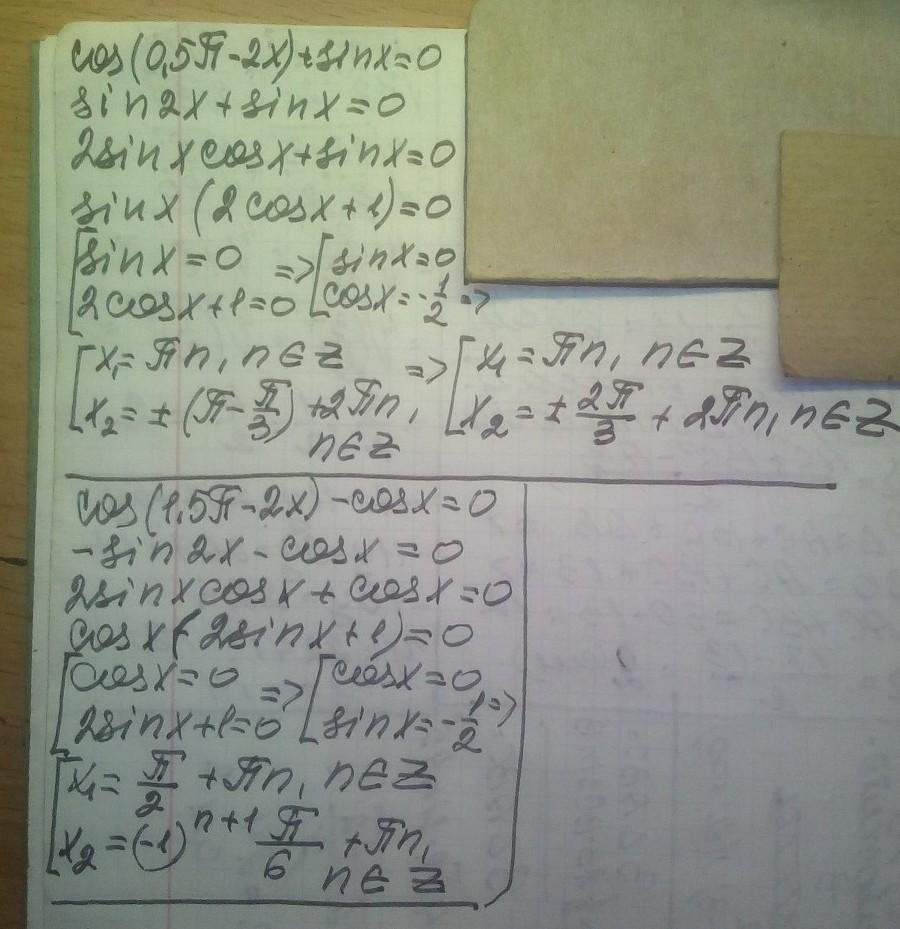 cos(0,5π-2x)+sinx=0
sin2x+sinx=0
2sinxcosx+sinx=0
sinx(2cosx+1)=0
[sinx=0 => [sinx=0
[2cosx+1=0 [cosx=-1/2 =>
[x₁=πn, n∈Z => [x₁=πn, n∈Z
[x₂=±(π-π/3)+2πn, [x₂=±2π/3+2πn, n∈Z
n∈Z
cos(1,5π-2x)-cosx=0
-sin2x-cosx=0
2sinxcosx+cosx=0
cosx(2sinx+1)=0
[cosx=0 => [cosx=0
[2sinx+1=0 [sinx=-1/2 =>
[x₁=π/2+πn, n∈Z
[x₂=(-1)ⁿ⁺¹ π/6+πn,
n∈Z